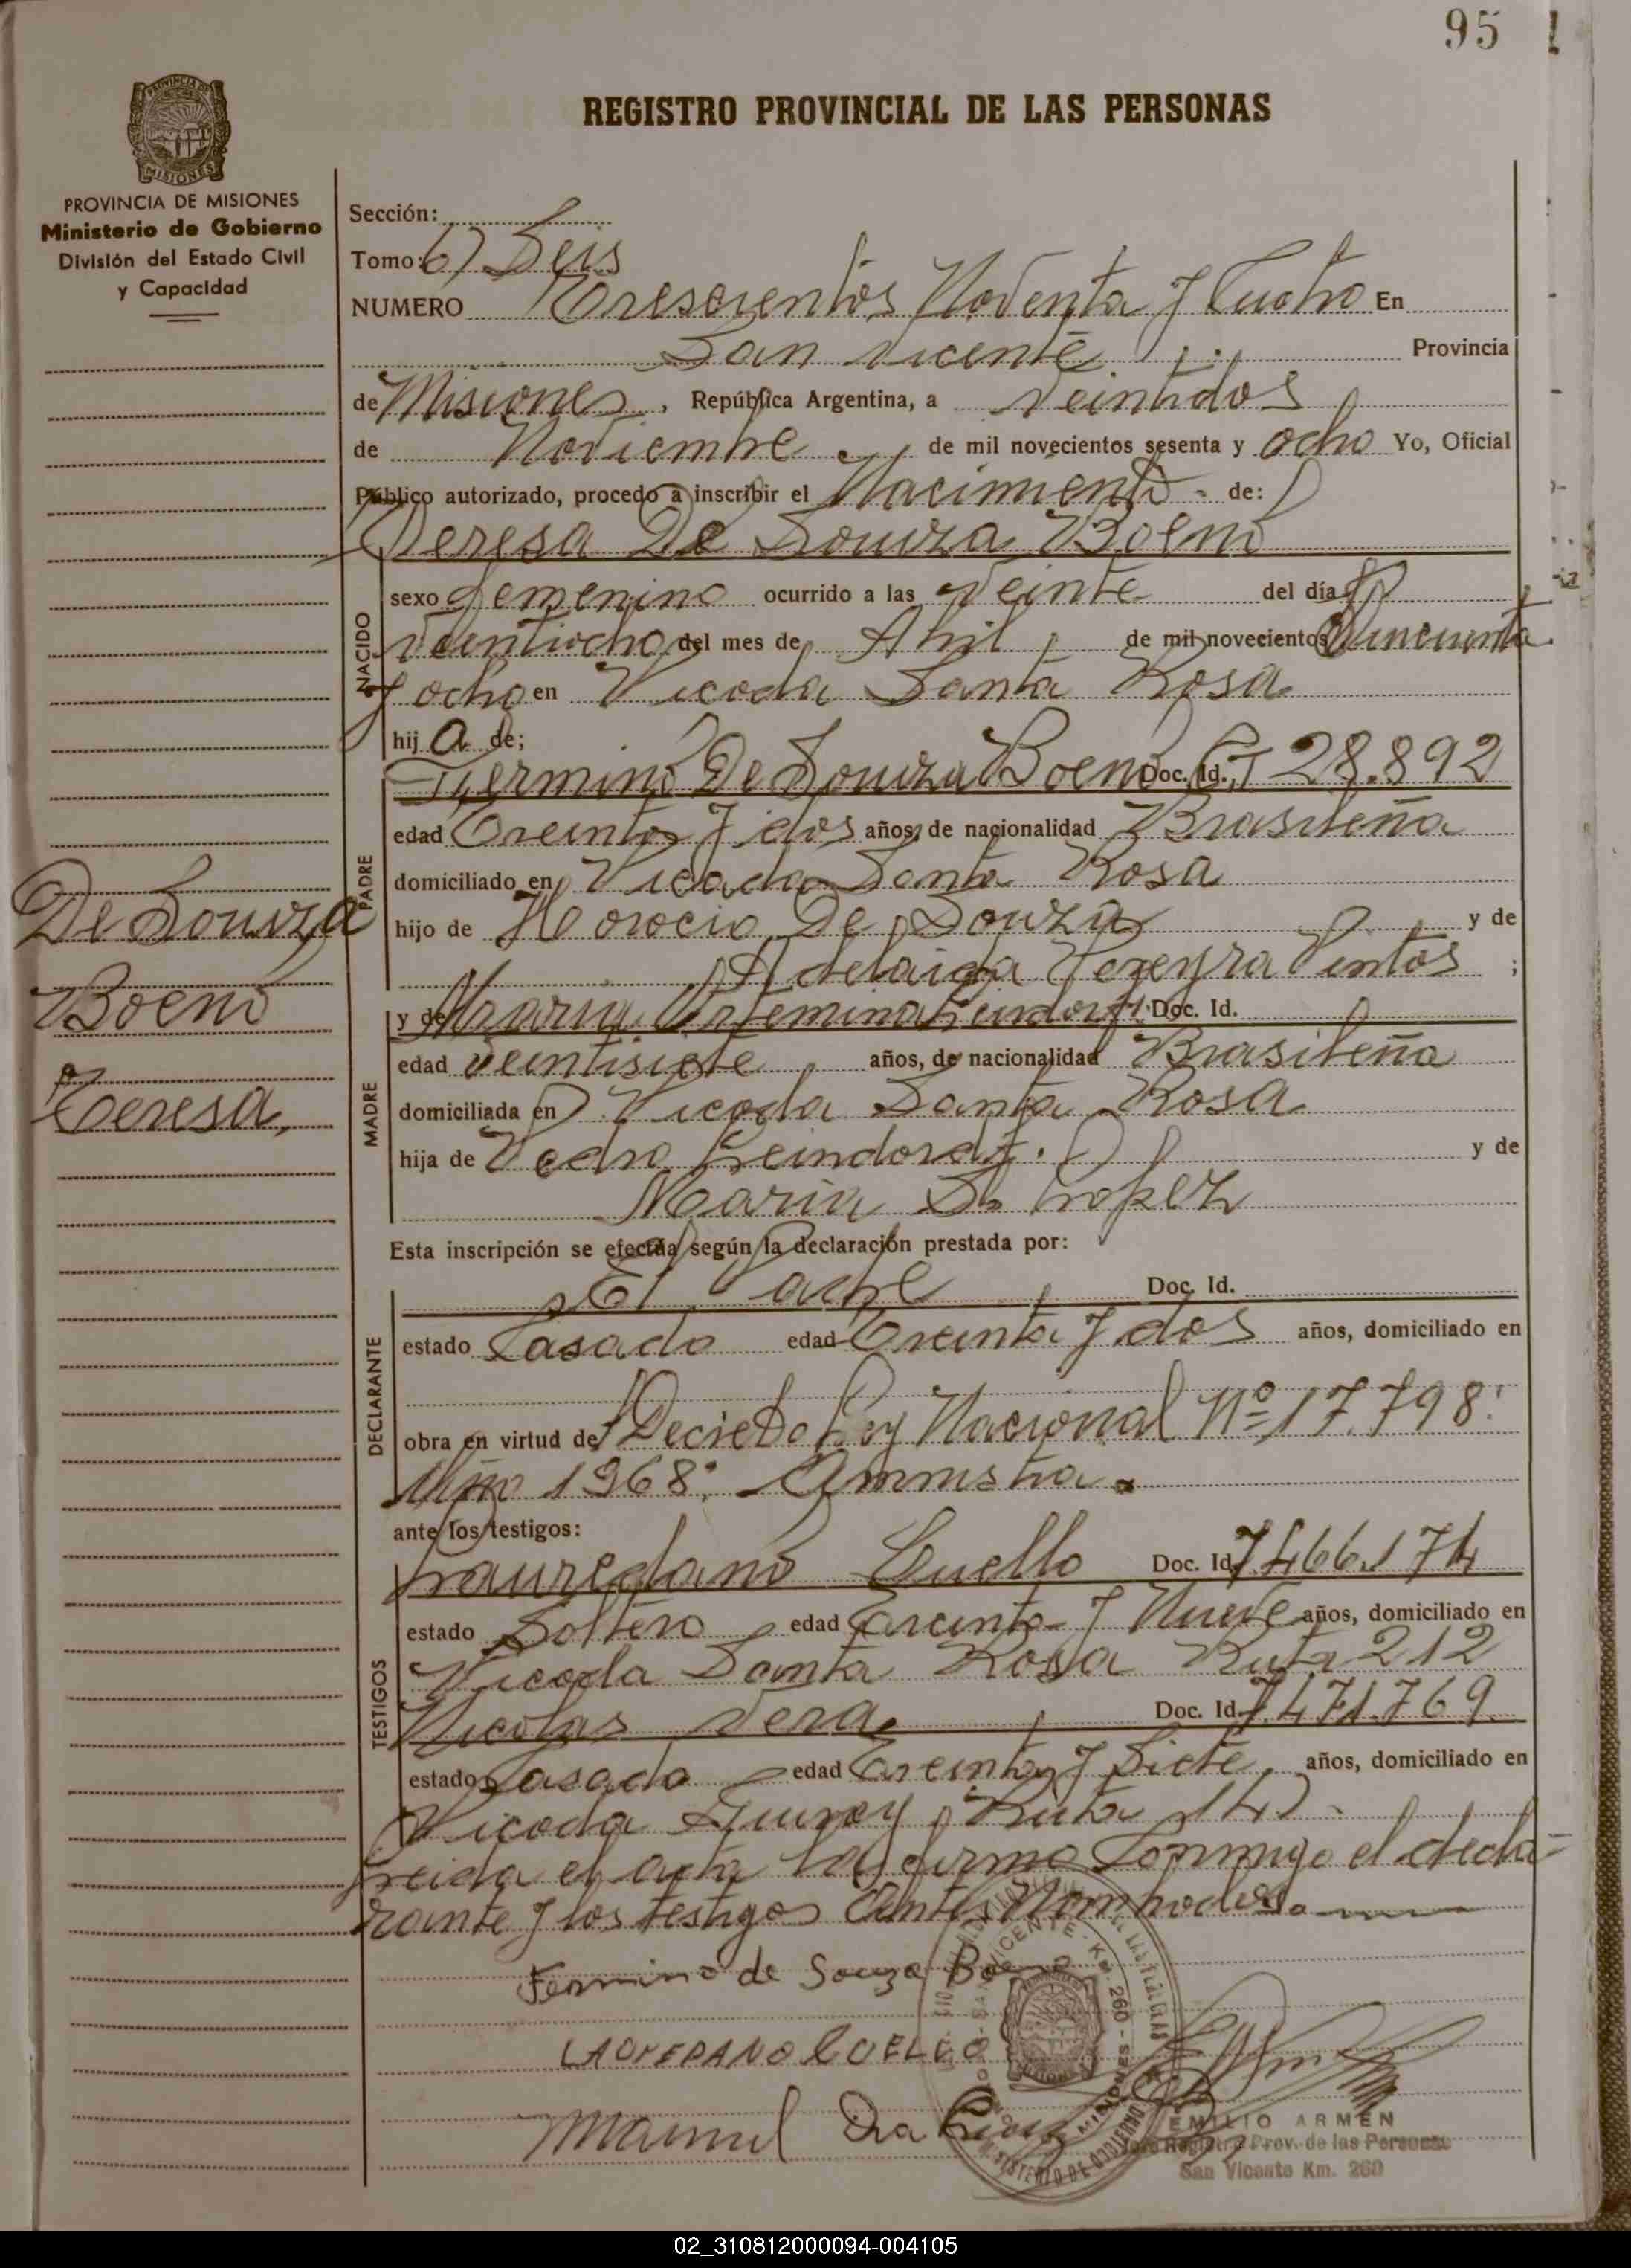 95
REGISTRO PROVINCIAL DE LAS PERSONAS
PROVINCIA DE MISIONES
Ministerio de Gobierno
División del Estado Civil
y Capacidad
Sección:
Tomo: 6) Seis
NUMERO Trescientos Noventa y Cuatro En
San Vicente Provincia
de Misiones, República Argentina, a veintidos
de Noviembre de mil novecientos sesenta y ocho Yo, Oficial
Público autorizado, procedo a inscribir el Nacimiento de:
Teresa De Souza Boeno
NACIDO
sexo femenino ocurrido a las veinte del día
veintiocho del mes de Abril de mil novecientos Cincuenta
y ocho en Picada Santa Rosa
hij a de;
PADRE
Fermino De Souza Boeno Doc. Id. 28.892
edad Treinta y dos años, de nacionalidad Brasileña
domiciliado en Picada Santa Rosa
hijo de Horocio De Souza y de
Adelaida Pereyra Pintos ;
De Souza
Boeno
Teresa,
MADRE
y de Maria Doc. Id.
edad veintisiete años, de nacionalidad Brasileña
domiciliada en Picada Santa Rosa
hija de Pedro y de
Maria S. Lopez
Esta inscripción se efectúa según la declaración prestada por:
DECLARANTE
El Padre Doc. Id.
estado Casado edad Treinta y dos años, domiciliado en
obra en virtud de Decreto Ley Nacional Nº 17.798.
Año 1968. Amnistia.
ante los testigos:
TESTIGOS
Lauredano Cuello Doc. Id. 7.466.174
estado Soltero edad Treinta y Nueve años, domiciliado en
Picada Santa Rosa Ruta 212
Nicolas Vera Doc. Id. 7.471.769
estado Casado edad Treinta y Siete años, domiciliado en
Picada Ruta 14)
Leida el acta la firma Conmigo el decla-
rante y los testigos Antes Nombrados.
Fermino de Souza Boeno
LAUREDANO CUELLO
Manuel
SAN VICENTE - Km. 260 - MISIONES
MINISTERIO DE GOBIERNO
EMILIO ARMEN
Jefe Registro Prov. de las Personas
San Vicente Km. 260
02_310812000094-004105